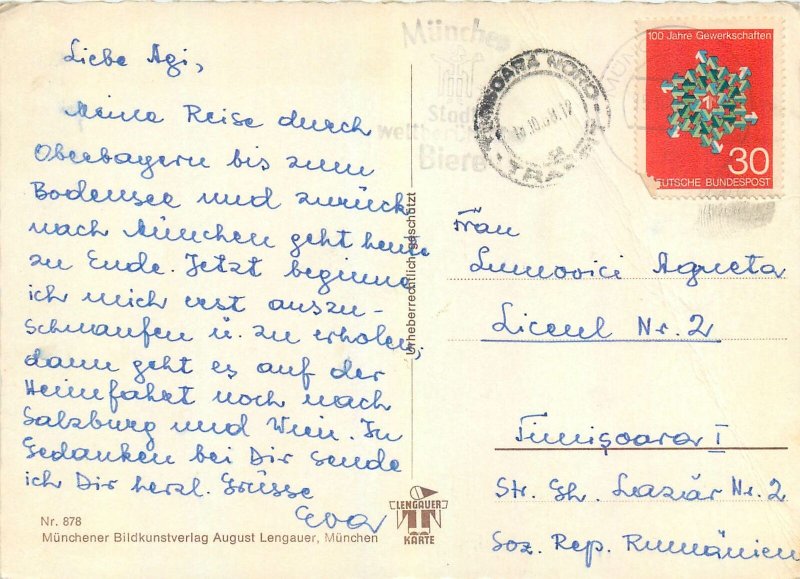 Liebe Agi,
Meine Reise durch
Oberbayern bis zum
Bodensee und zurück
nach München geht heute
zu Ende. Jetzt beginne
ich mich erst auszu-
schnaufen u. zu erholen,
dann geht es auf der
Heimfahrt noch nach
Salzburg und Wien. In
Gedanken bei Dir sende
ich Dir herzl. Grüsse
Eva
Nr. 878
Münchener Bildkunstverlag August Lengauer, München
LENGAUER
KARTE
Urheberrechtlich geschützt
München
Stadt
Biere
TIMIȘOARA NORD
TRANZIT
100 Jahre Gewerkschaften
30
DEUTSCHE BUNDESPOST
Frau
Lunovici Agneta
Liceul Nr. 2
Timișoara I
Str. Gh. Lazăr Nr. 2
Soz. Rep. Rumänien